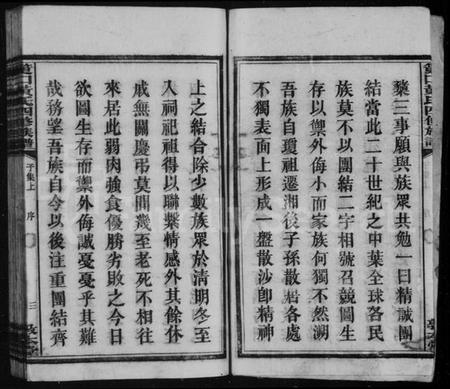 黎三事願與族眾共勉一曰精誠團
結當此二十世紀之中葉全球各民
族莫不以團結二字相號召競圖生
存以禦外侮小而家族何獨不然溯
吾族自瓊祖遷湘後子孫散居各處
不獨表面上形成一盤散沙卽精神
上之結合除少數族眾於清明冬至
入祠祀祖得以聯繫情感外其餘休
戚無關慶弔莫聞幾至老死不相往
來居此弱肉強食優勝劣敗之今日
欲圖生存而禦外侮誠憂憂乎其難
哉務望吾族自今以後注重團結齊
黃氏四修族譜
子集上
序
三